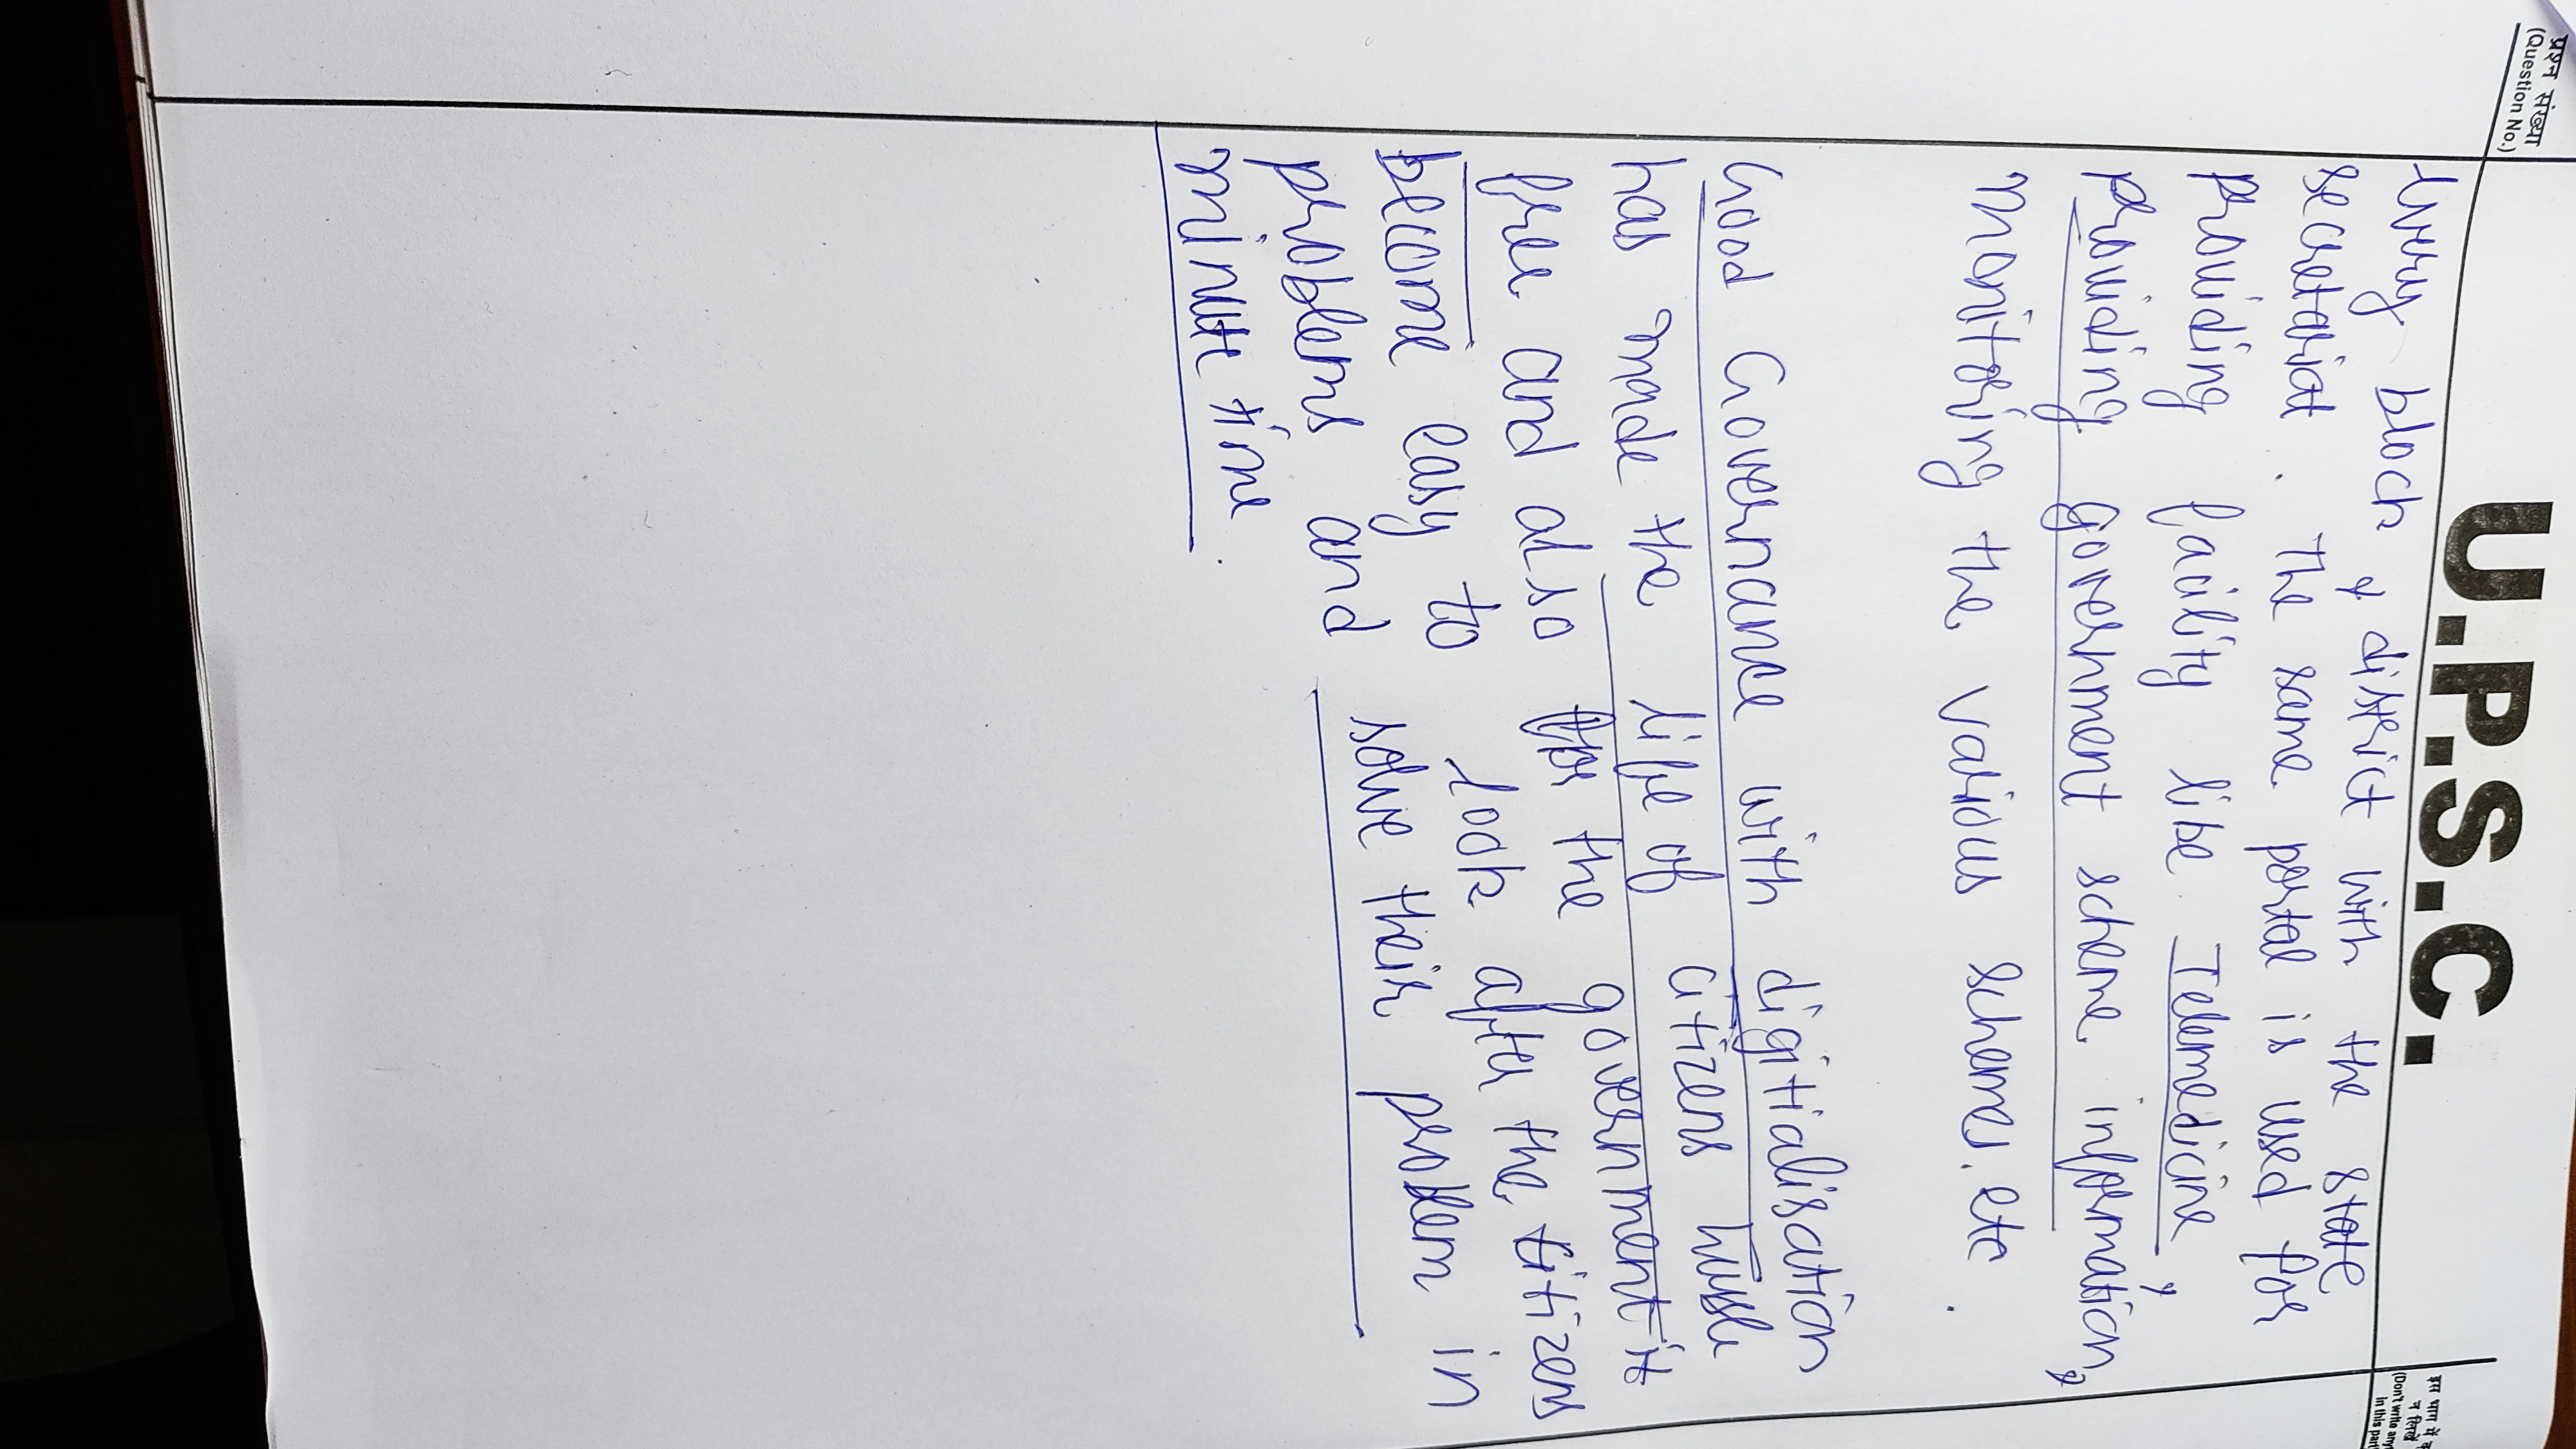 प्रश्न संख्या
(Question No.)
U.P.S.C.
(Don't write any
in this part
every block & district with the state
secretariat. The same portal is used for
providing facility like Telemedicine,
providing Government scheme information,
monitoring the various schemes. etc.
Good Governance with digitialisation
has made the life of citizens hussle
free and also for the government it
become easy to look after the citizens
problems and solve their problem in
minute time.